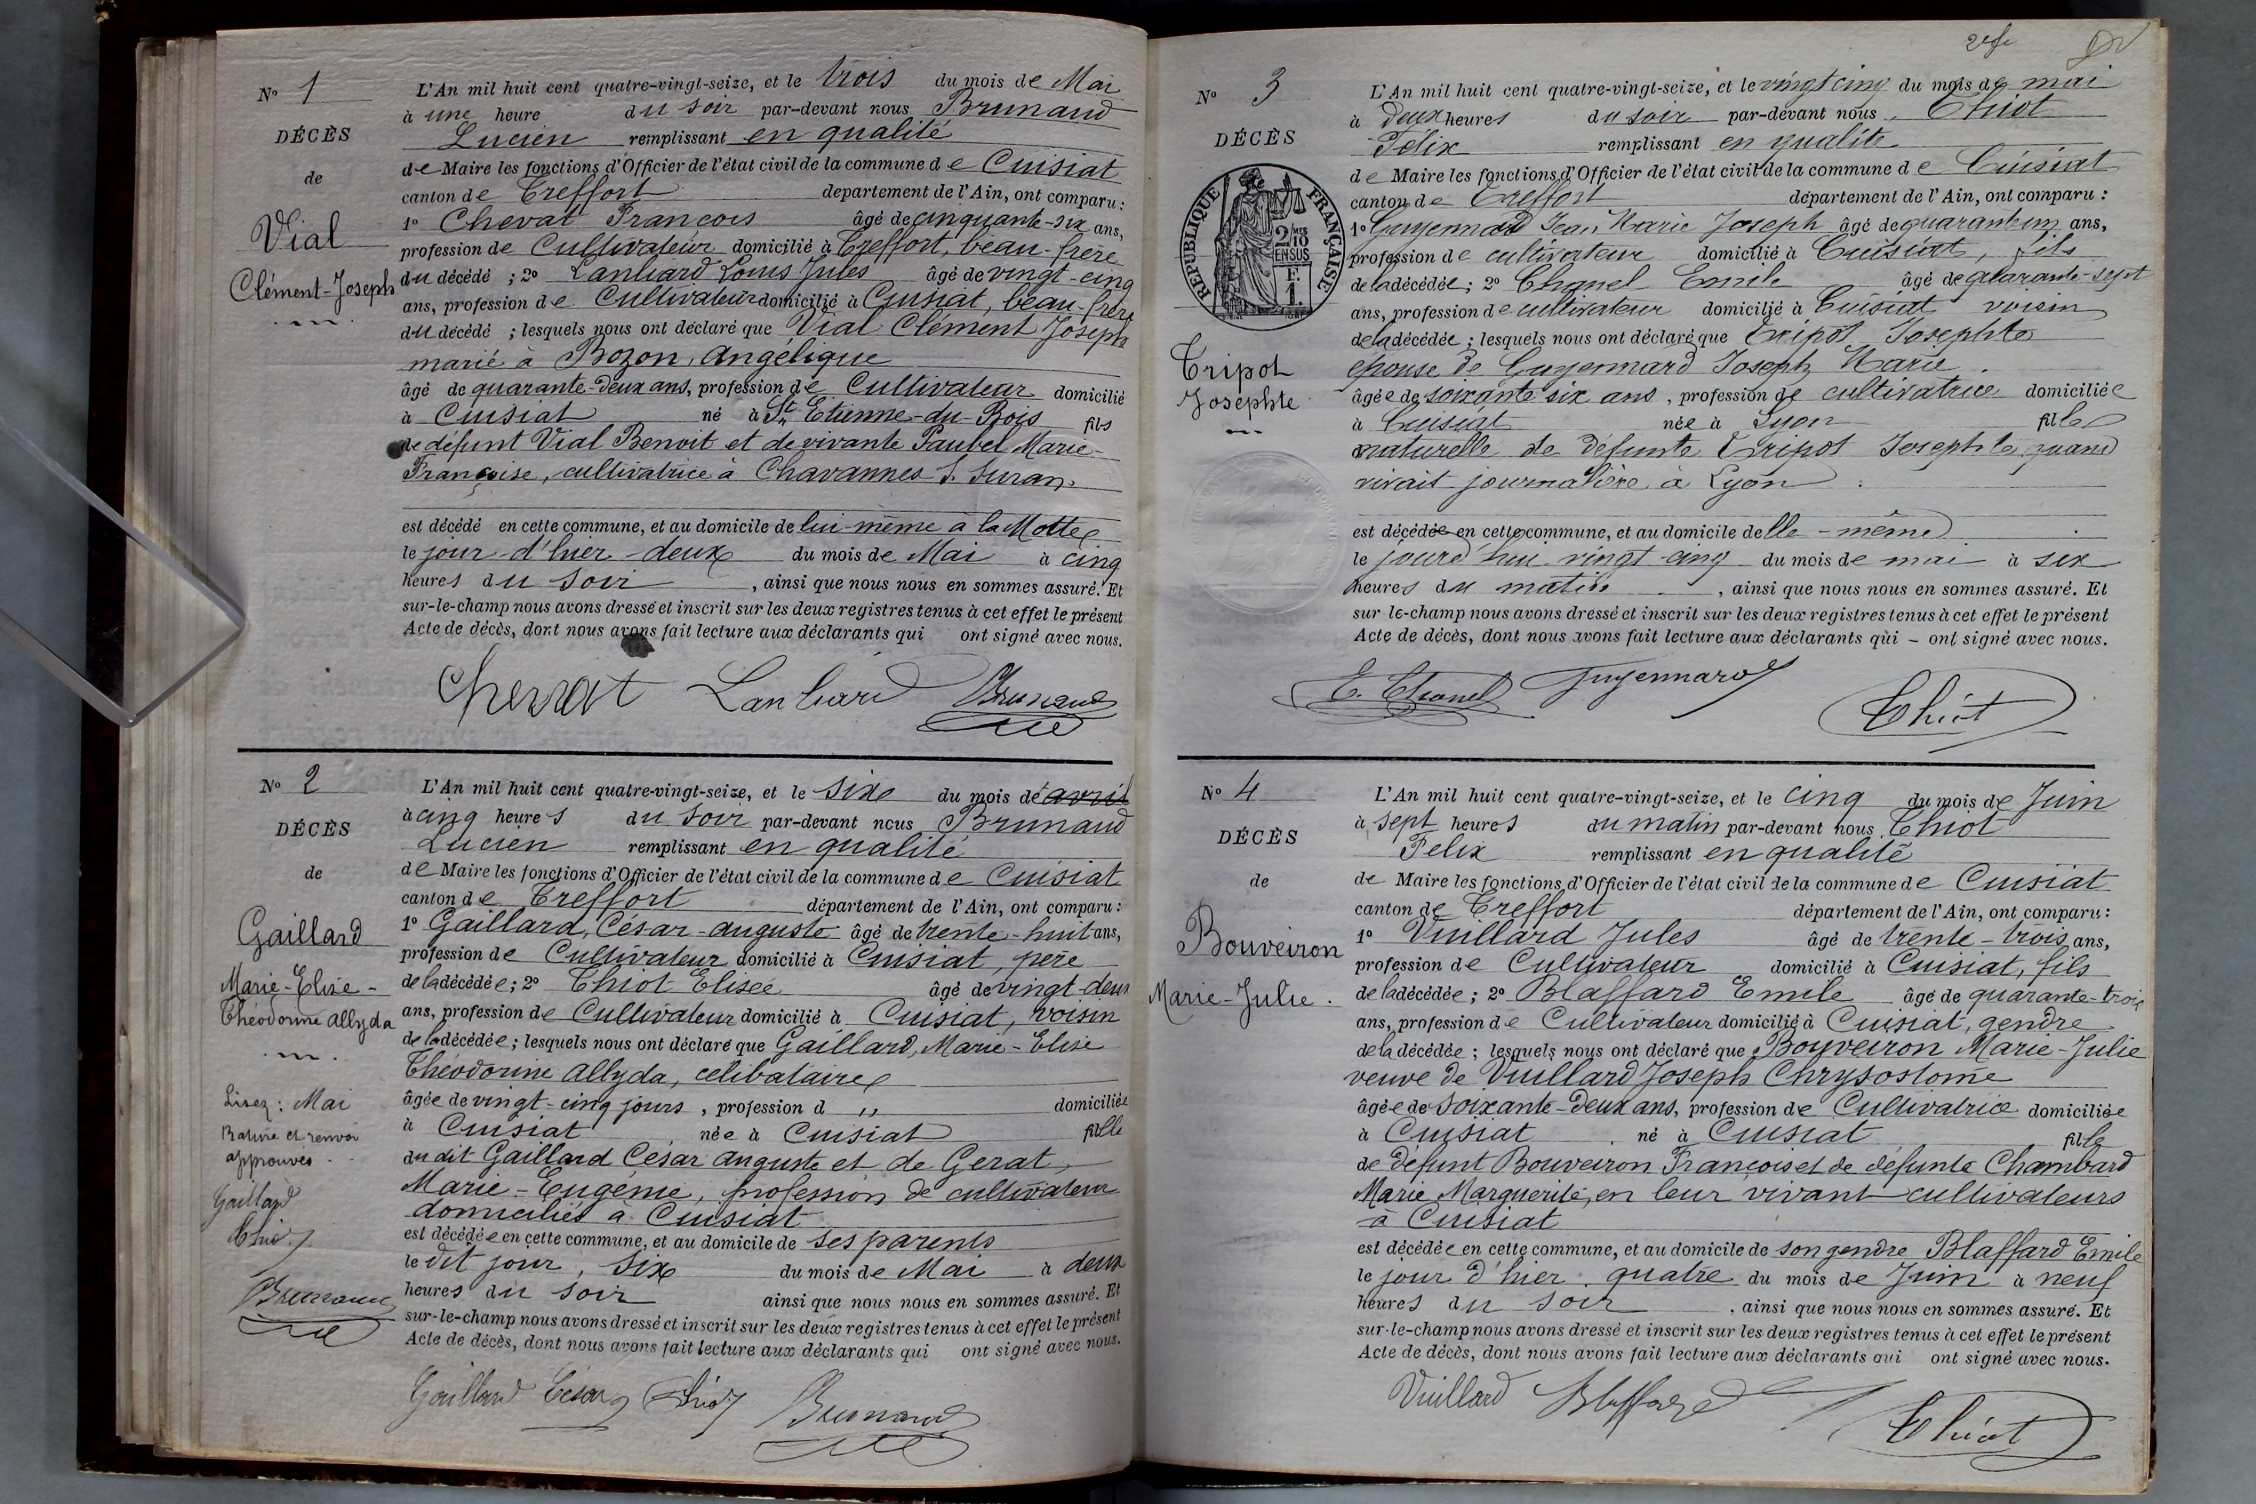 No 1
DÉCÈS
de
Vial
Clément-Joseph
L'An mil huit cent quatre-vingt-seize, et le trois du mois de Mai
à une heure du soir par-devant nous Brunaud
Lucien remplissant en qualité
de Maire les fonctions d'Officier de l'état civil de la commune de Cuisiat
canton de Treffort département de l'Ain, ont comparu :
1o Chevat François âgé de cinquante-six ans,
profession de Cultivateur domicilié à Treffort, beau-frère
du décédé ; 2o Lanhard Louis Jules âgé de vingt-cinq
ans, profession de Cultivateur domicilié à Cuisiat, beau-frère
du décédé ; lesquels nous ont déclaré que Vial Clément Joseph
marié à Bozon, Angélique
âgé de quarante-deux ans, profession de Cultivateur domicilié
à Cuisiat né à St Etienne-du-Bois fils
de défunt Vial Benoit et de vivante Paubel Marie-
Françoise, cultivatrice à Chavannes s. Suran.
est décédé en cette commune, et au domicile de lui-même à la Motte
le jour d'hier deux du mois de Mai à cinq
heures du soir, ainsi que nous nous en sommes assuré. Et
sur-le-champ nous avons dressé et inscrit sur les deux registres tenus à cet effet le présent
Acte de décès, dont nous avons fait lecture aux déclarants qui ont signé avec nous.
Chevat Lanhard Brunaud
No 2
DÉCÈS
de
Gaillard
Marie-Elise-
Théodorine Allyda
Lisez : Mai
Rature et renvoi
approuvés
Gaillard
Thiot
Brunaud
L'An mil huit cent quatre-vingt-seize, et le six du mois de avril
à cinq heures du soir par-devant nous Brunaud
Lucien remplissant en qualité
de Maire les fonctions d'Officier de l'état civil de la commune de Cuisiat
canton de Treffort département de l'Ain, ont comparu :
1o Gaillard, César-auguste âgé de trente-huit ans,
profession de Cultivateur domicilié à Cuisiat, père
de la décédée ; 2o Thiot Elisée âgé de vingt-deux
ans, profession de Cultivateur domicilié à Cuisiat, voisin
de la décédée ; lesquels nous ont déclaré que Gaillard, Marie-Elise
Théodorine Allyda, célibataire
âgée de vingt-cinq jours, profession d ,, domiciliée
à Cuisiat née à Cuisiat fille
du dit Gaillard César auguste et de Gerat,
Marie-Eugénie, profession de cultivateur
domiciliés à Cuisiat
est décédée en cette commune, et au domicile de ses parents
le dit jour, six du mois de Mai à deux
heures du soir ainsi que nous nous en sommes assuré. Et
sur-le-champ nous avons dressé et inscrit sur les deux registres tenus à cet effet le présent
Acte de décès, dont nous avons fait lecture aux déclarants qui ont signé avec nous.
Gaillard César Thiot Brunaud
No 3
DÉCÈS
RÉPUBLIQUE FRANÇAISE
2/10 EN SUS
Tripot
Josephte
L'An mil huit cent quatre-vingt-seize, et le vingt cinq du mois de mai
à deux heures du soir par-devant nous Thiot
Félix remplissant en qualité
de Maire les fonctions d'Officier de l'état civil de la commune de Cuisiat
canton de Treffort département de l'Ain, ont comparu :
1o Guyennard Jean Marie Joseph âgé de quarante un ans,
profession de cultivateur domicilié à Cuisiat, fils
de la décédée ; 2o Chanel Emile âgé de quarante-sept
ans, profession de cultivateur domicilié à Cuisiat voisin
de la décédée ; lesquels nous ont déclaré que Tripot Josephte
épouse de Guyennard Joseph Marie
âgée de soixante six ans, profession de cultivatrice domiciliée
à Cuisiat née à Lyon fille
naturelle de défunte Tripot Josephte quand
vivait journalière à Lyon
est décédée en cette commune, et au domicile de lle-même
le jourd'hui vingt cinq du mois de mai à six
heures du matin, ainsi que nous nous en sommes assuré. Et
sur-le-champ nous avons dressé et inscrit sur les deux registres tenus à cet effet le présent
Acte de décès, dont nous avons fait lecture aux déclarants qui – ont signé avec nous.
E. Chanel Guyennard Thiot
No 4
DÉCÈS
de
Bouveiron
Marie-Julie.
L'An mil huit cent quatre-vingt-seize, et le cinq du mois de Juin
à sept heures du matin par-devant nous Thiot
Felix remplissant en qualité
de Maire les fonctions d'Officier de l'état civil de la commune de Cuisiat
canton de Treffort département de l'Ain, ont comparu :
1o Vuillard Jules âgé de trente-trois ans,
profession de Cultivateur domicilié à Cuisiat, fils
de la décédée ; 2o Blaffard Emile âgé de quarante-trois
ans, profession de Cultivateur domicilié à Cuisiat, gendre
de la décédée ; lesquels nous ont déclaré que Bouveiron Marie-Julie
veuve de Vuillard Joseph Chrysostome
âgée de soixante-deux ans, profession de Cultivatrice domiciliée
à Cuisiat né à Cuisiat fille
de défunt Bouveiron François et de défunte Chambard
Marie Marguerite, en leur vivant cultivateurs
à Cuisiat
est décédée en cette commune, et au domicile de son gendre Blaffard Emile
le jour d'hier quatre du mois de Juin à neuf
heures du soir, ainsi que nous nous en sommes assuré. Et
sur-le-champ nous avons dressé et inscrit sur les deux registres tenus à cet effet le présent
Acte de décès, dont nous avons fait lecture aux déclarants qui ont signé avec nous.
Vuillard Blaffard Thiot